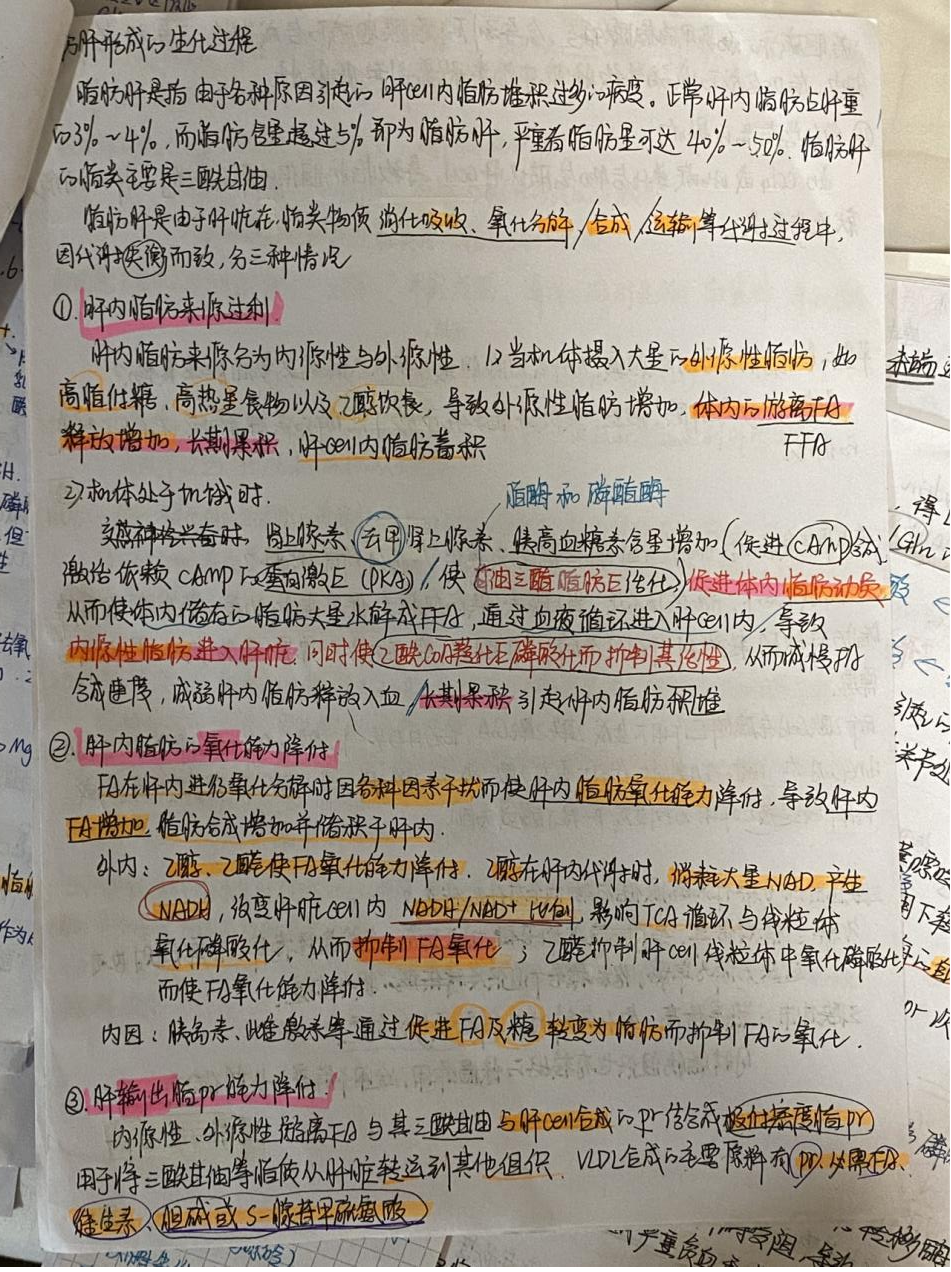 肪肝形成的生化过程
脂肪肝是指由于各种原因引起的肝cell内脂肪堆积过多的病变。正常肝内脂肪占肝重
的3%~4%,而脂肪含量超过5%即为脂肪肝,严重者脂肪量可达40%~50%.脂肪肝
的脂类主要是三酰甘油.
脂肪肝是由于肝脏在脂类物质消化吸收、氧化分解/合成/运输等代谢过程中,
因代谢失衡而致,分三种情况
①.肝内脂肪来源过剩
肝内脂肪来源分为内源性与外源性.1>当机体摄入大量的外源性脂肪,如
高脂低糖、高热量食物以及乙醇饮食,导致外源性脂肪增加,体内的游离FA
FFA
释放增加,长期累积,肝cell内脂肪蓄积
2>机体处于饥饿时.
脂酶和磷酸酶
交感神经兴奋时,肾上腺素、去甲肾上腺素、胰高血糖素含量增加(促进cAMP合成
激活依赖cAMP的蛋白激E(PKA)/使甘油三酯脂肪E活化)促进体内脂肪动员
从而使体内储存的脂肪大量水解成FFA,通过血液循环进入肝cell内/导致
内源性脂肪进入肝脏.同时使乙酰CoA羧化E磷酸化而抑制其活性,从而减慢FA
合成速度,减弱肝内脂肪释放入血/长期累积引起肝内脂肪积堆
②.肝内脂肪的氧化能力降低
FA在肝内进行氧化分解时因各种因素干扰而使肝内脂肪氧化能力降低,导致肝内
FA增加,脂肪合成增加并储积于肝内.
外内:乙醇、乙醛使FA氧化能力降低.乙醇在肝内代谢时,消耗大量NAD,产生
NADH,改变肝脏cell内NADH/NAD+比例,影响TCA循环与线粒体
氧化磷酸化,从而抑制FA氧化;乙醛抑制肝cell线粒体中氧化磷酸化
而使FA氧化能力降低.
内因:胰岛素、雌激素等通过促进FA及糖转变为脂肪而抑制FA的氧化.
③.肝输出脂pr能力降低.
内源性、外源性游离FA与其三酰甘油与肝cell合成的pr结合成极低密度脂pr
用于将三酰甘油等脂质从肝脏转运到其他组织.VLDL合成的主要原料有pr、必需FA、
维生素、胆碱或S-腺苷甲硫氨酸